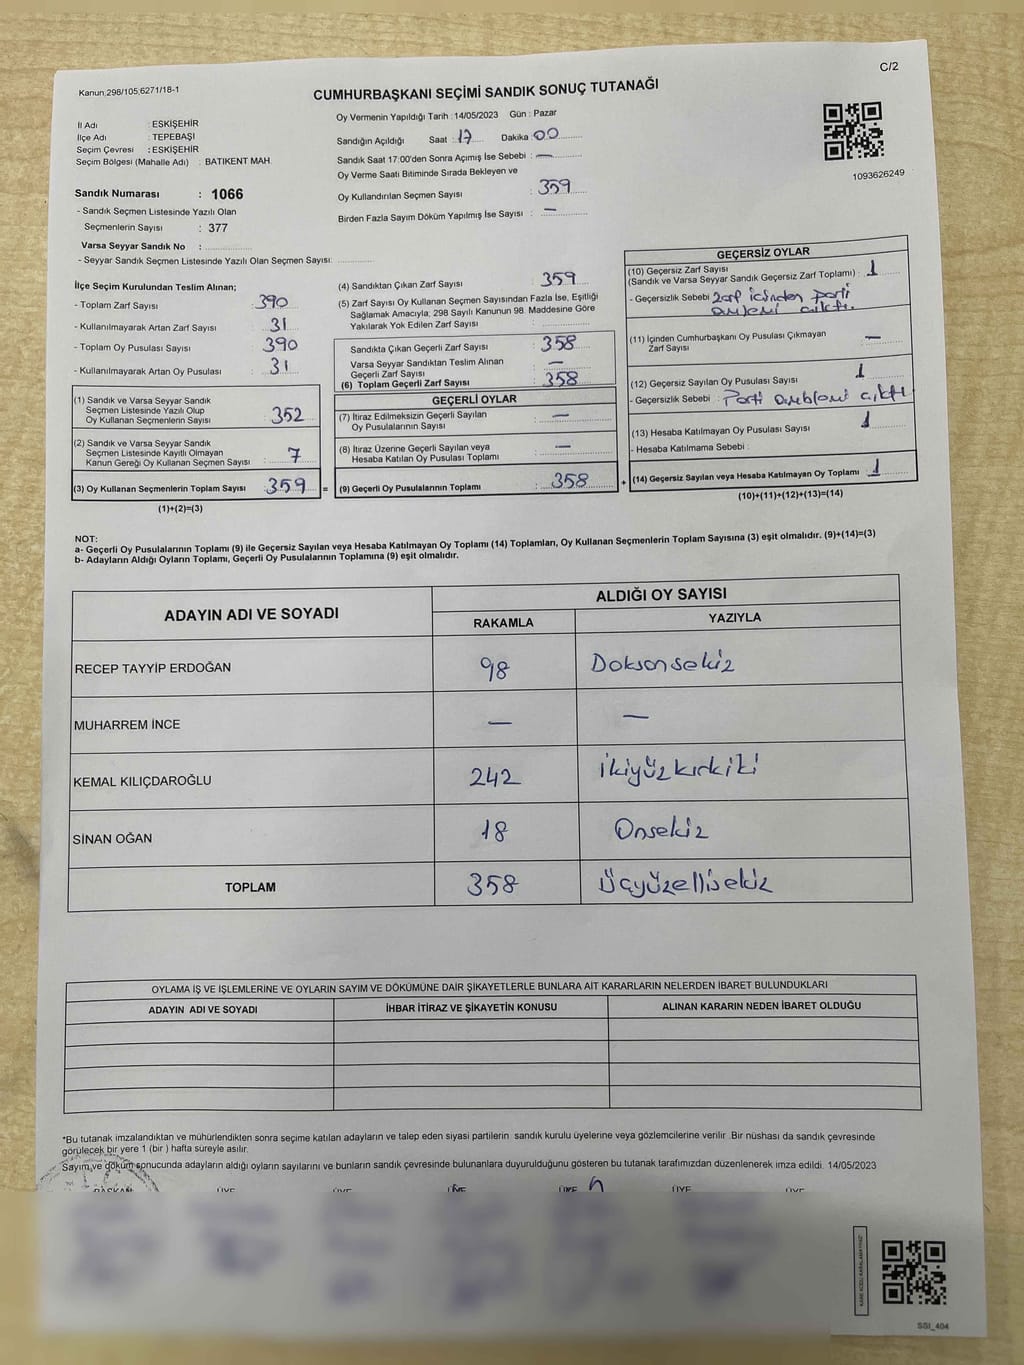 C/2
Kanun:298/105,6271/18-1
CUMHURBAŞKANI SEÇİMİ SANDIK SONUÇ TUTANAĞI
İl Adı : ESKİŞEHİR
İlçe Adı : TEPEBAŞI
Seçim Çevresi : ESKİŞEHİR
Seçim Bölgesi (Mahalle Adı) : BATIKENT MAH.
Sandık Numarası : 1066
- Sandık Seçmen Listesinde Yazılı Olan
Seçmenlerin Sayısı : 377
Varsa Seyyar Sandık No :
- Seyyar Sandık Seçmen Listesinde Yazılı Olan Seçmen Sayısı:
Oy Vermenin Yapıldığı Tarih : 14/05/2023 Gün : Pazar
Sandığın Açıldığı Saat : 17 Dakika 00
Sandık Saat 17:00'den Sonra Açımış İse Sebebi : —
Oy Verme Saati Bitiminde Sırada Bekleyen ve
Oy Kullandırılan Seçmen Sayısı : 359
Birden Fazla Sayım Döküm Yapılmış İse Sayısı : —
1093626249
İlçe Seçim Kurulundan Teslim Alınan;
- Toplam Zarf Sayısı : 390
- Kullanılmayarak Artan Zarf Sayısı : 31
- Toplam Oy Pusulası Sayısı : 390
- Kullanılmayarak Artan Oy Pusulası : 31
(1) Sandık ve Varsa Seyyar Sandık
Seçmen Listesinde Yazılı Olup
Oy Kullanan Seçmenlerin Sayısı : 352
(2) Sandık ve Varsa Seyyar Sandık
Seçmen Listesinde Kayıtlı Olmayan
Kanun Gereği Oy Kullanan Seçmen Sayısı : 7
(3) Oy Kullanan Seçmenlerin Toplam Sayısı : 359 =
(1)+(2)=(3)
(4) Sandıktan Çıkan Zarf Sayısı : 359
(5) Zarf Sayısı Oy Kullanan Seçmen Sayısından Fazla İse, Eşitliği
Sağlamak Amacıyla; 298 Sayılı Kanunun 98. Maddesine Göre
Yakılarak Yok Edilen Zarf Sayısı :
Sandıkta Çıkan Geçerli Zarf Sayısı : 358
Varsa Seyyar Sandıktan Teslim Alınan
Geçerli Zarf Sayısı : —
(6) Toplam Geçerli Zarf Sayısı : 358
GEÇERLİ OYLAR
(7) İtiraz Edilmeksizin Geçerli Sayılan
Oy Pusulalarının Sayısı : —
(8) İtiraz Üzerine Geçerli Sayılan veya
Hesaba Katılan Oy Pusulası Toplamı : —
(9) Geçerli Oy Pusulalarının Toplamı : 358 +
GEÇERSİZ OYLAR
(10) Geçersiz Zarf Sayısı
(Sandık ve Varsa Seyyar Sandık Geçersiz Zarf Toplamı) : 1
- Geçersizlik Sebebi : Zarf içinden parti
amblemi çıktı.
(11) İçinden Cumhurbaşkanı Oy Pusulası Çıkmayan
Zarf Sayısı : —
(12) Geçersiz Sayılan Oy Pusulası Sayısı : 1
- Geçersizlik Sebebi : Parti amblemi çıktı
(13) Hesaba Katılmayan Oy Pusulası Sayısı : 1
- Hesaba Katılmama Sebebi :
(14) Geçersiz Sayılan veya Hesaba Katılmayan Oy Toplamı : 1
(10)+(11)+(12)+(13)=(14)
NOT:
a- Geçerli Oy Pusulalarının Toplamı (9) ile Geçersiz Sayılan veya Hesaba Katılmayan Oy Toplamı (14) Toplamları, Oy Kullanan Seçmenlerin Toplam Sayısına (3) eşit olmalıdır. (9)+(14)=(3)
b- Adayların Aldığı Oyların Toplamı, Geçerli Oy Pusulalarının Toplamına (9) eşit olmalıdır.
ADAYIN ADI VE SOYADI
ALDIĞI OY SAYISI
RAKAMLA YAZIYLA
RECEP TAYYİP ERDOĞAN 98 Doksonsekiz
MUHARREM İNCE — —
KEMAL KILIÇDAROĞLU 242 İkiyüzkırkiki
SİNAN OĞAN 18 Onsekiz
TOPLAM 358 Üçyüzellisekiz
OYLAMA İŞ VE İŞLEMLERİNE VE OYLARIN SAYIM VE DÖKÜMÜNE DAİR ŞİKAYETLERLE BUNLARA AİT KARARLARIN NELERDEN İBARET BULUNDUKLARI
ADAYIN ADI VE SOYADI İHBAR İTİRAZ VE ŞİKAYETİN KONUSU ALINAN KARARIN NEDEN İBARET OLDUĞU
*Bu tutanak imzalandıktan ve mühürlendikten sonra seçime katılan adayların ve talep eden siyasi partilerin sandık kurulu üyelerine veya gözlemcilerine verilir .Bir nüshası da sandık çevresinde
görülecek bir yere 1 (bir ) hafta süreyle asılır.
Sayım ve döküm sonucunda adayların aldığı oyların sayılarını ve bunların sandık çevresinde bulunanlara duyurulduğunu gösteren bu tutanak tarafımızdan düzenlenerek imza edildi. 14/05/2023
BAŞKAN ÜYE ÜYE ÜYE ÜYE ÜYE ÜYE
KARE KODU KARALAMAYINIZ!
SSI_404